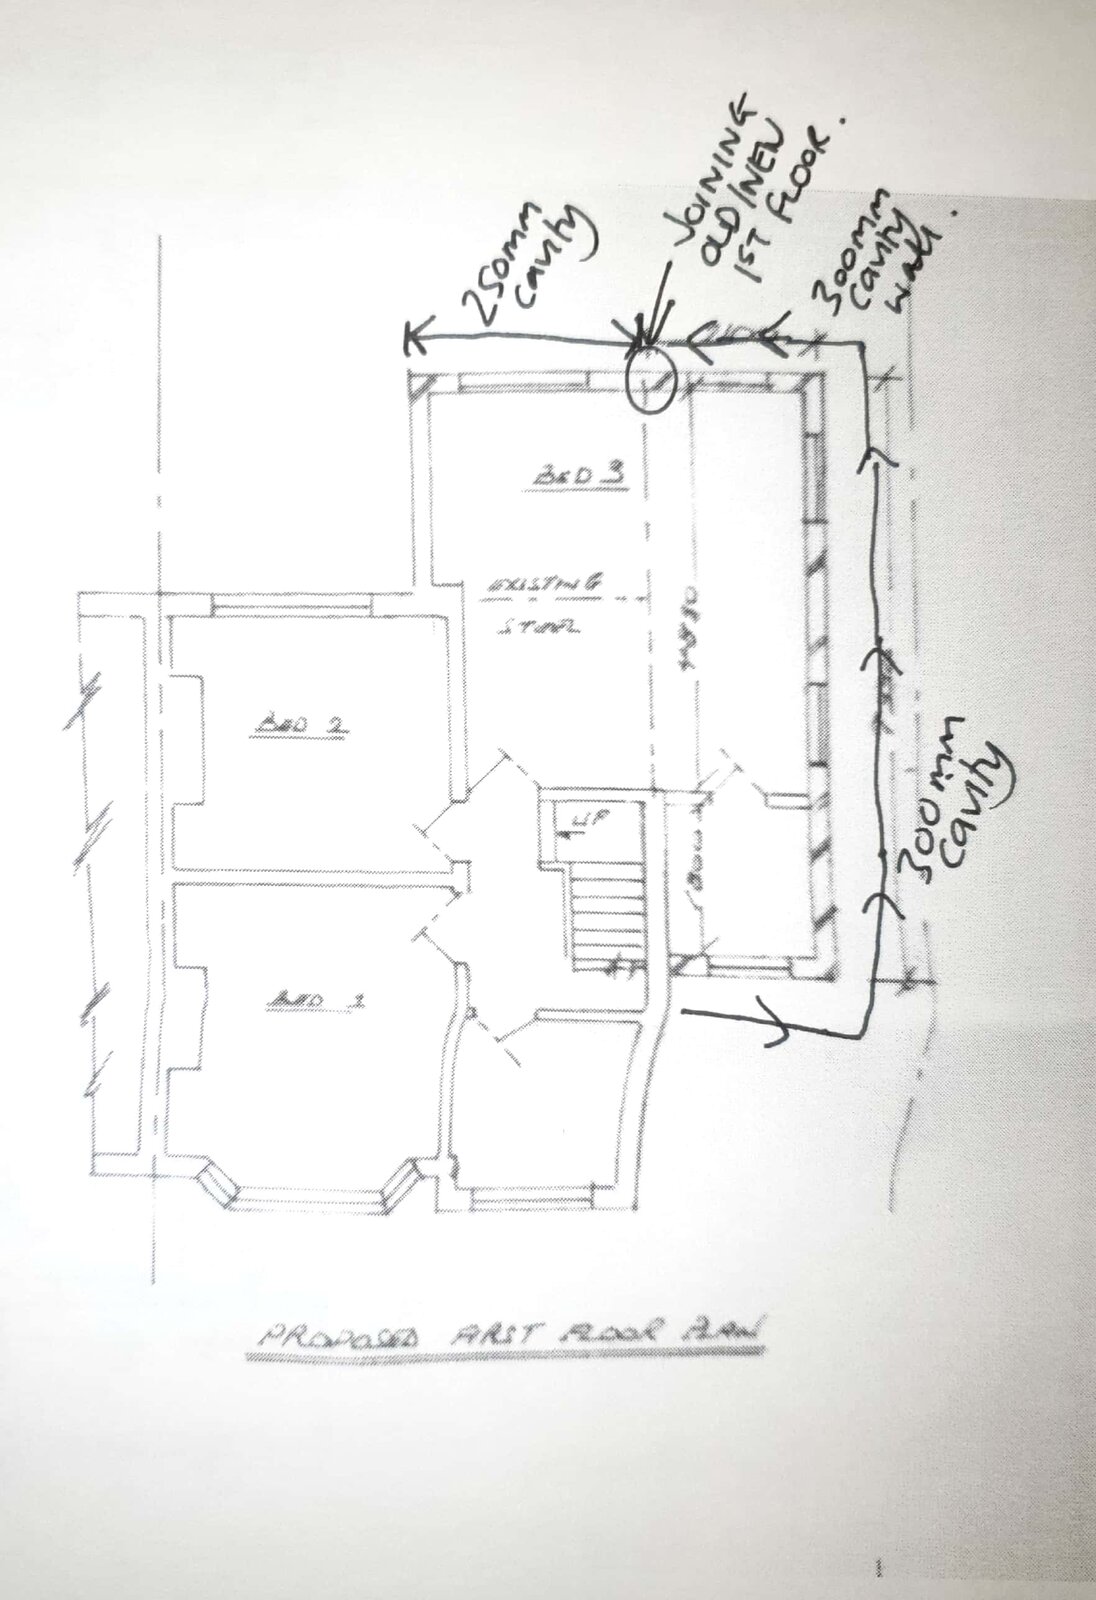 JOINING
OLD/NEW
1ST FLOOR.
250mm
cavity
300mm
cavity
wall.
BED 3
EXISTING
BED 2
UP
300mm
cavity
BED 1
PROPOSED FIRST FLOOR PLAN